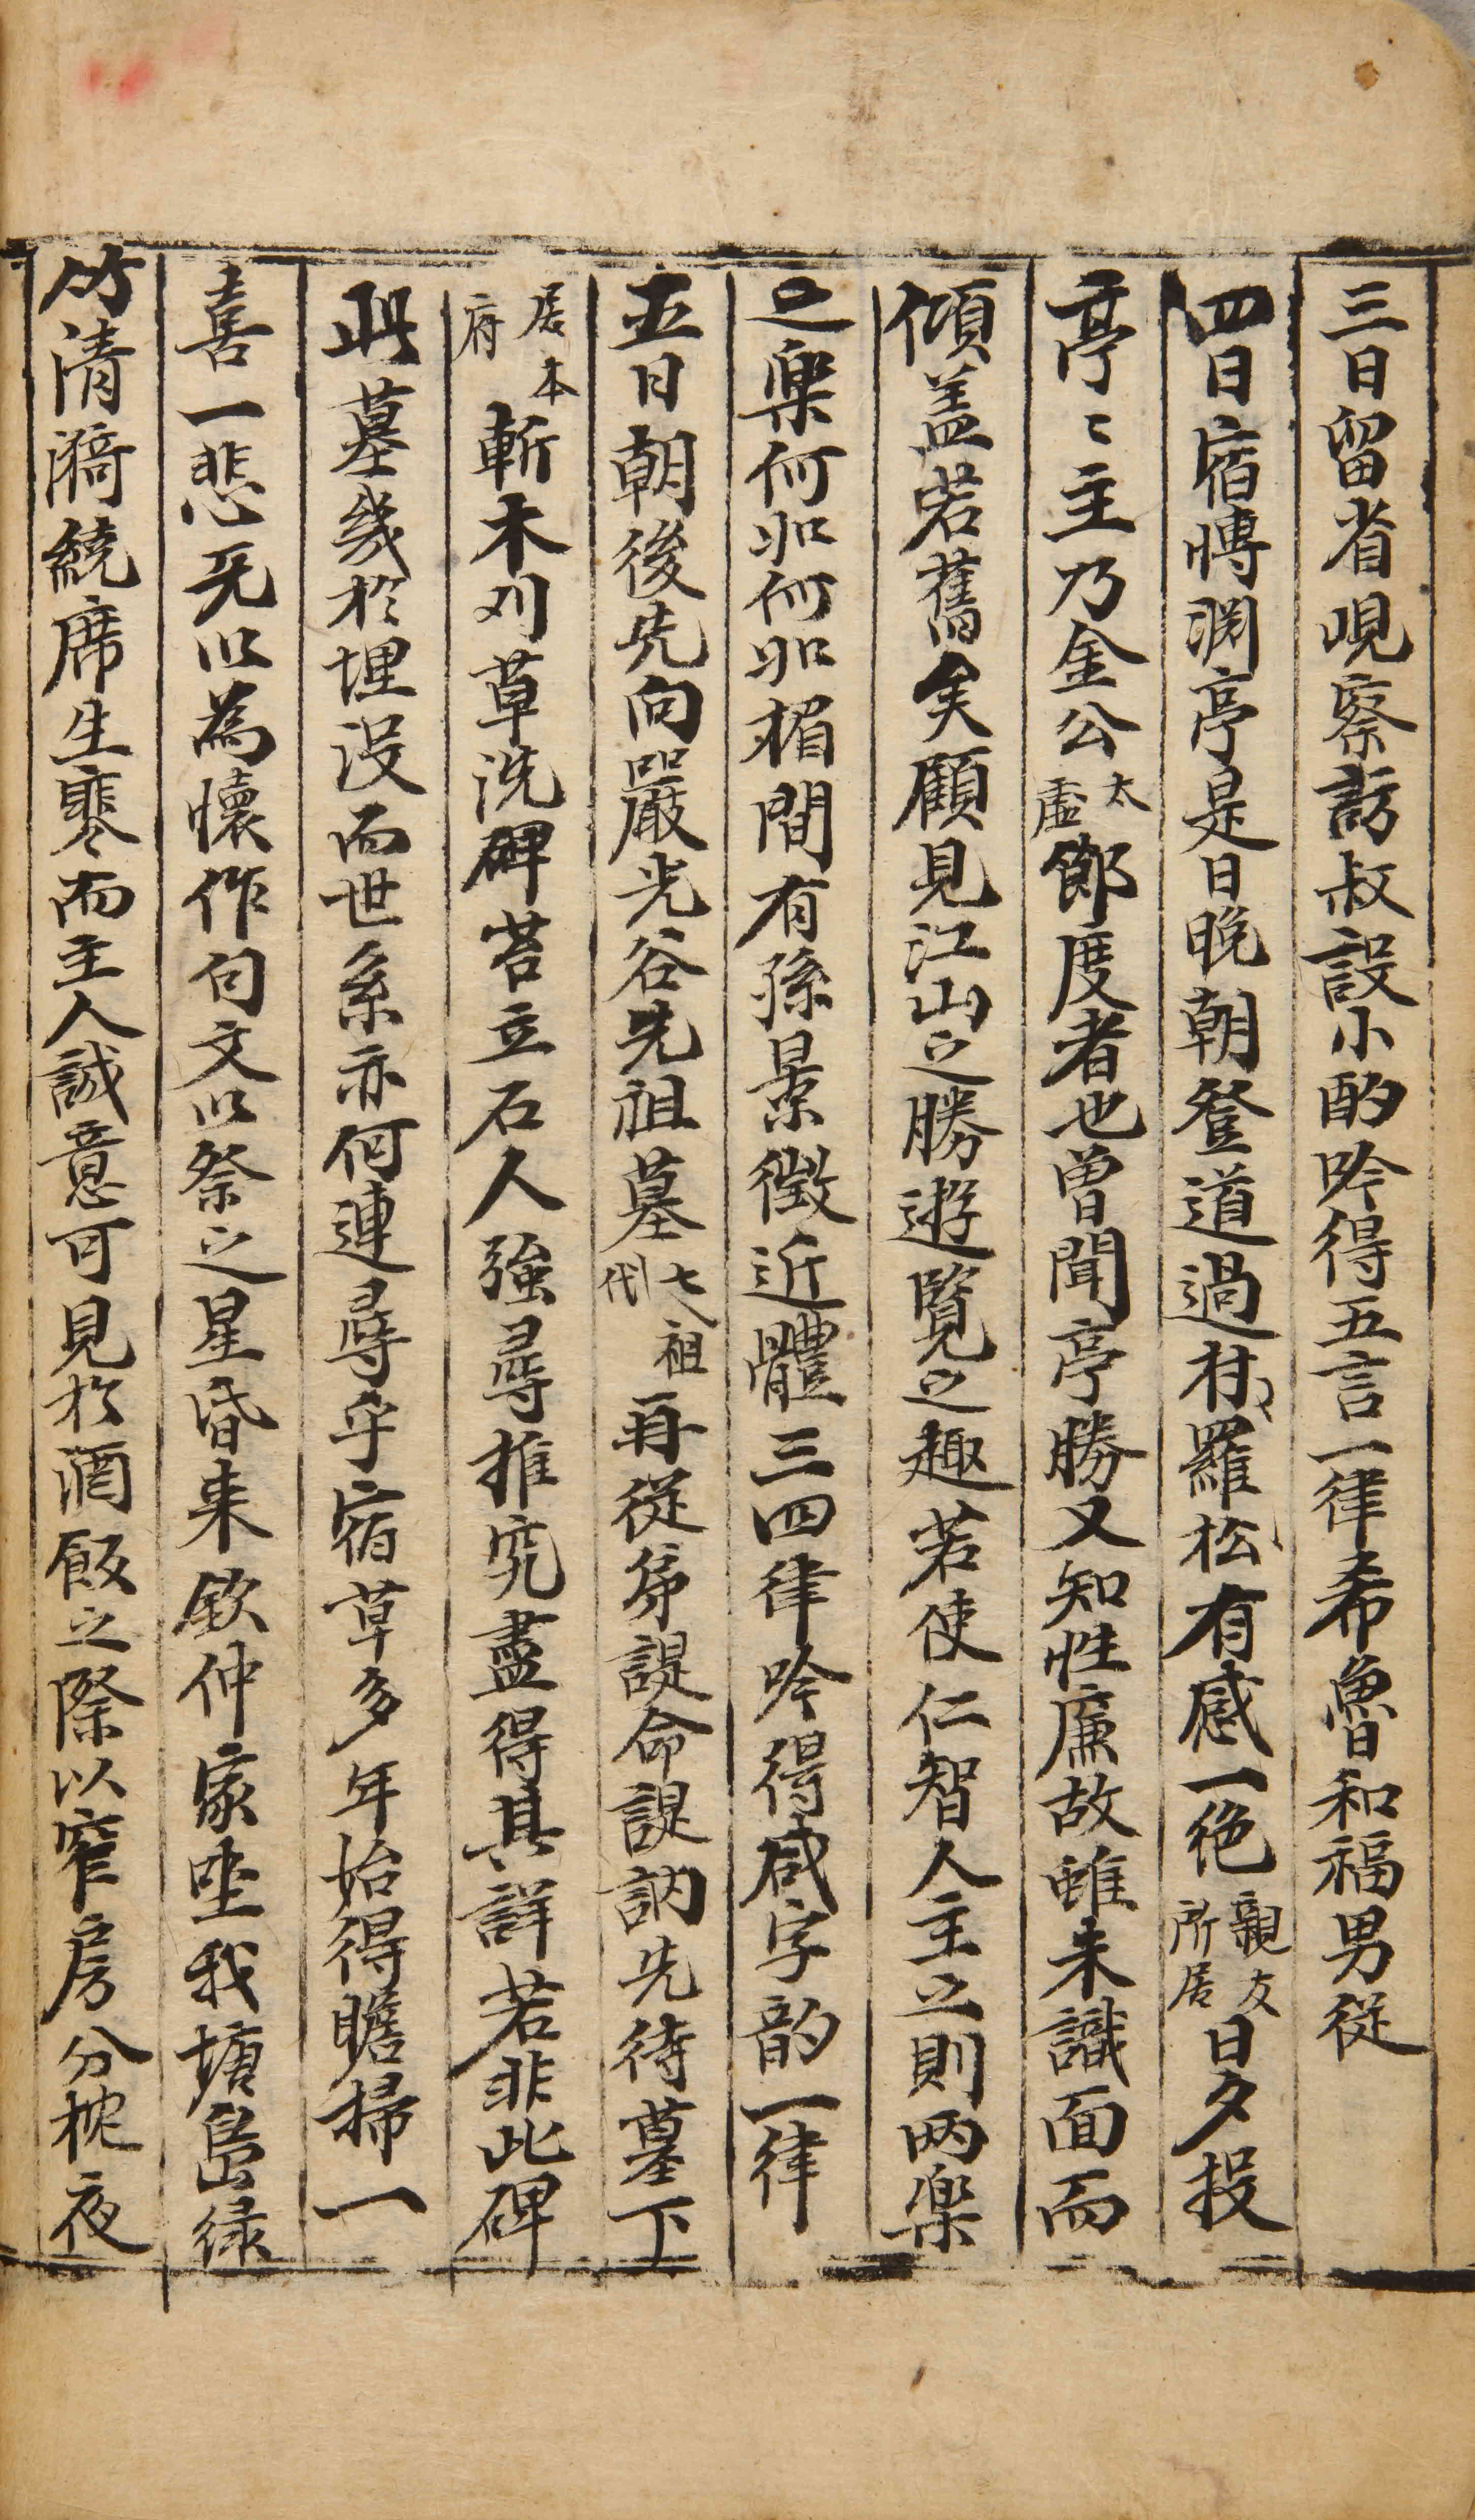 三日留省峴察訪叔設小酌吟得五言一律希魯和福男從
四日宿博淵亭是日晚朝登道過村羅松有感一絶親友所居日夕投
亭〻主乃金公太虛節度者也曾聞亭勝又知性廉故雖未識面而
傾盖若舊矣顧見江山之勝遊覽之趣若使仁智人主之則兩楽
之楽何如何如楣間有孫景徵近體三四律吟得咸字韵一律
五日朝後先向嚴光谷先祖墓七代祖再從弟諟命諟訥先待墓下
居本府斬木刈草洗碑苔立石人強尋推究盡得其詳若非此碑
此墓幾於埋沒而世系亦何連尋乎宿草多年始得瞻掃一
喜一悲旡以為懷作句文以祭之星昏来欽仲家坐我塘島緑
竹清漪繞席生寒而主人誠意可見於酒飯之際以窄房分枕夜